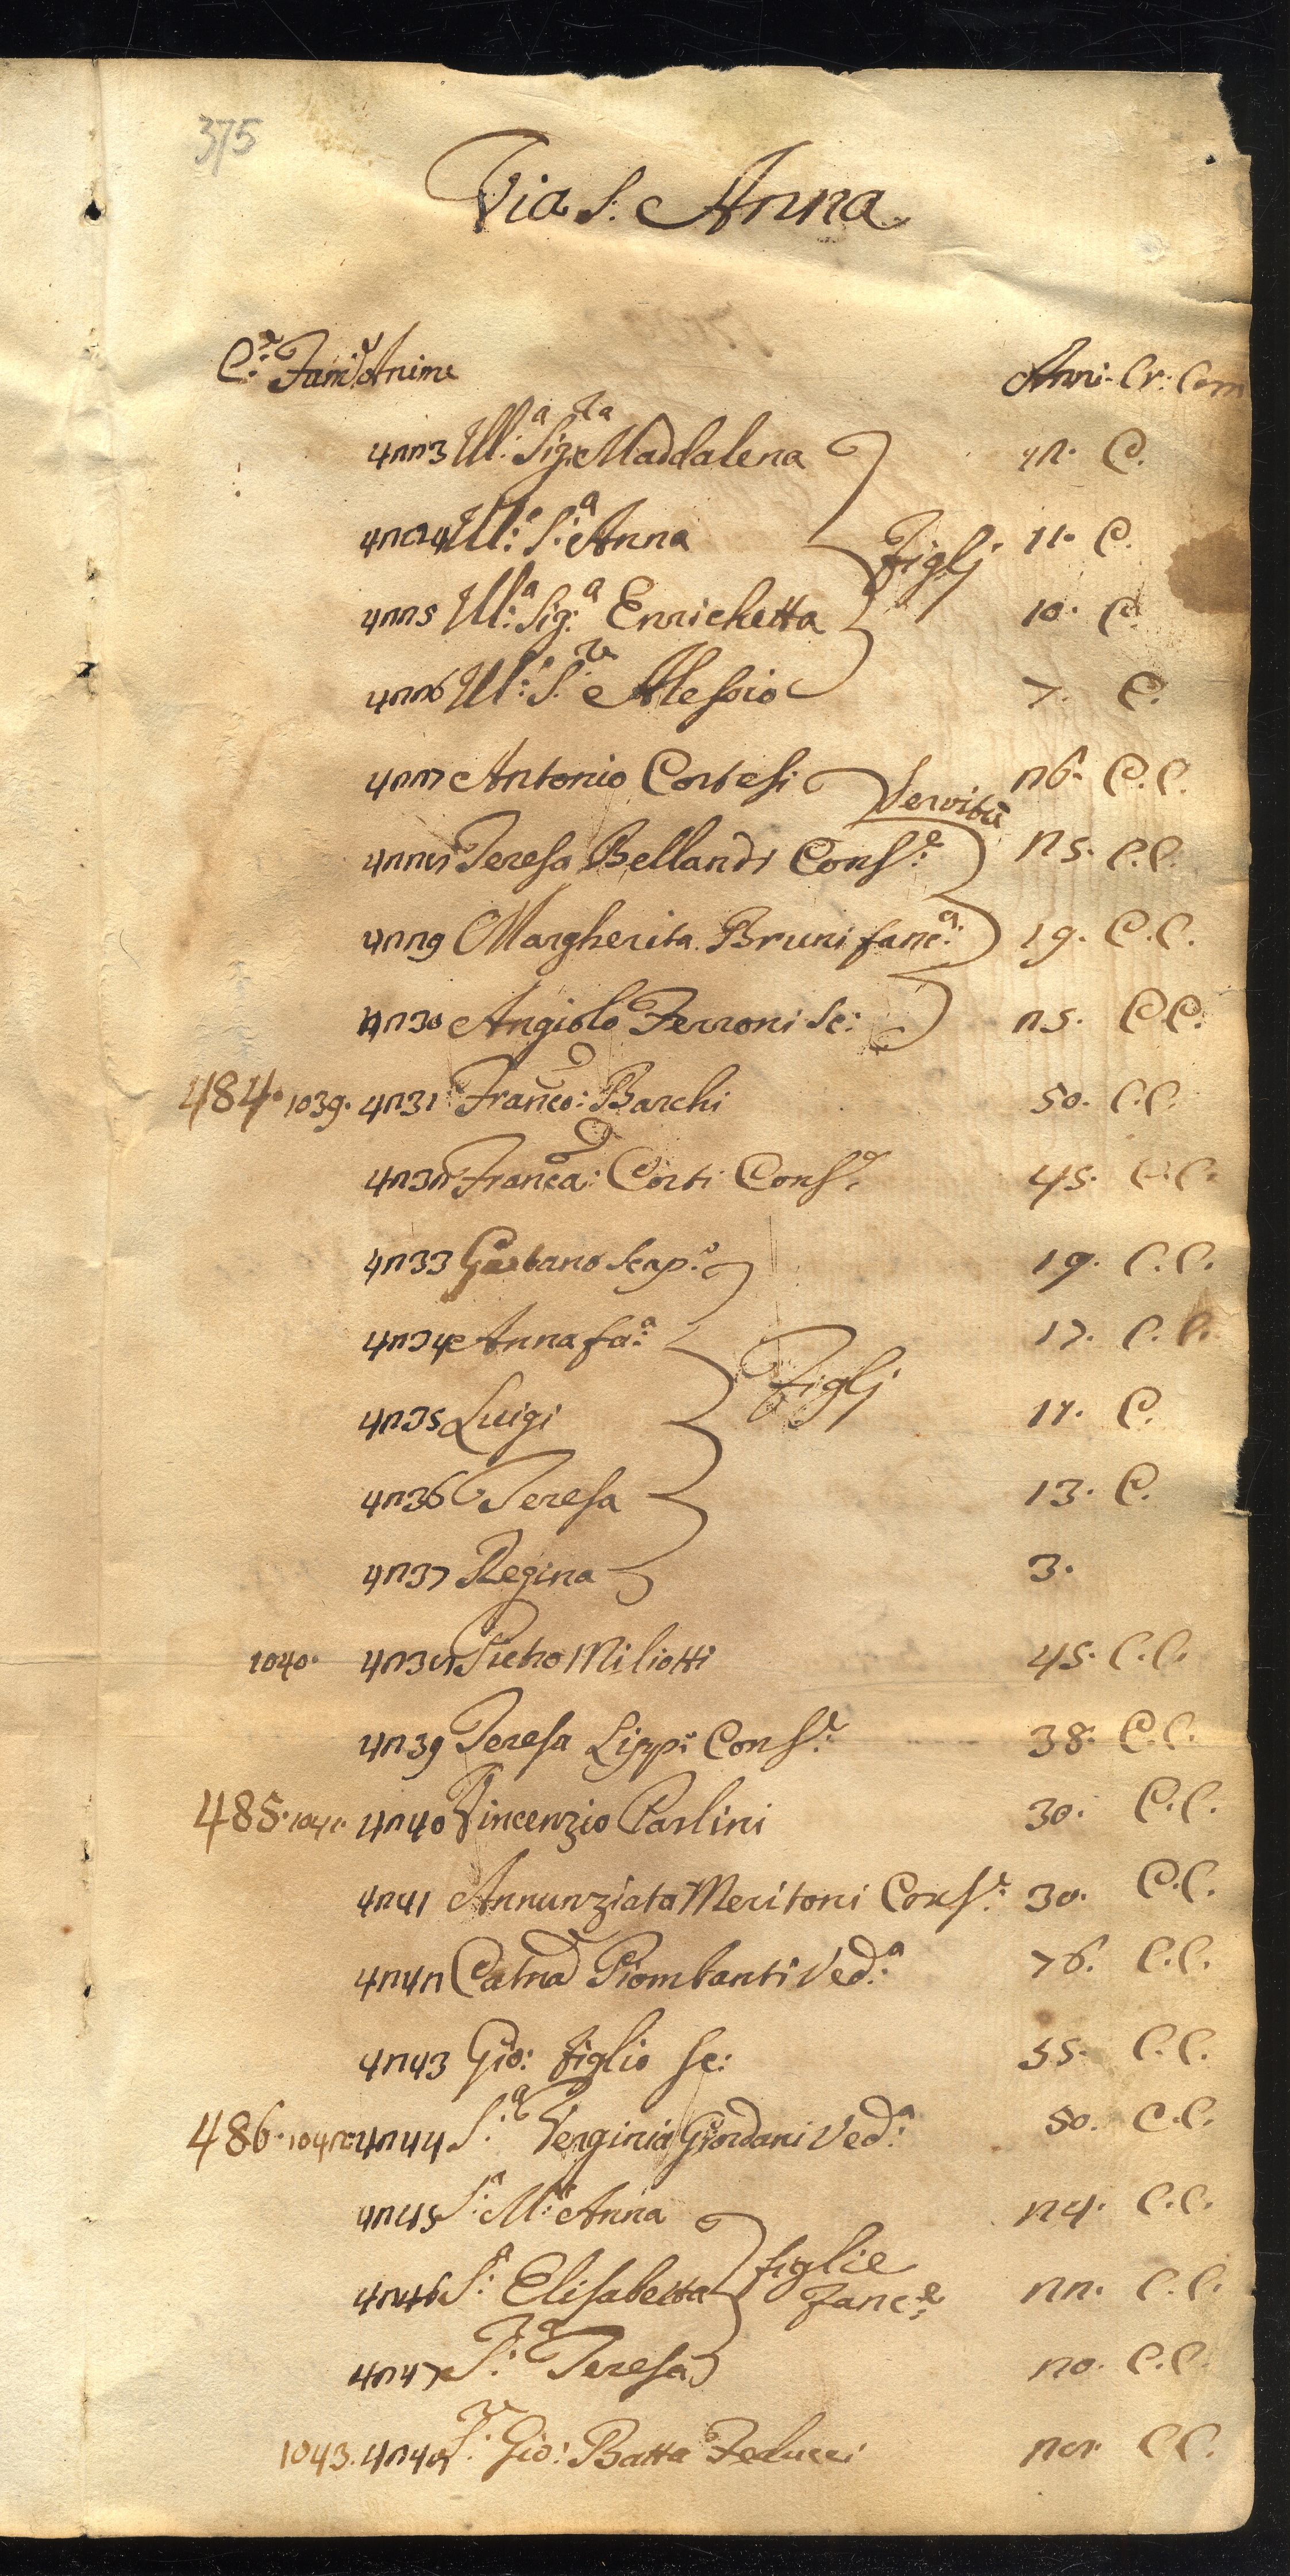 375
Via S. Anna
C.e Fami.e Anime Anni. Cr: Com
4223 Ill.a Sig.ra Maddalena 12. C.
4224 Ill.a S.a Anna 11. C.
4225 Ill.a Sig.a Enrichetta Figlj 10. C.
4226 Ill.e S.re Alessio 7. C.
4227 Antonio Cortesi 26. C.C.
Servitù
4228 Teresa Bellandi Cons.e 25. C.C.
4229 Margherita Bruni fanc.a 19. C.C.
4230 Angiolo Ferroni sc: 25. C.C.
484. 1039. 4231 Franco: Barchi 50. C.C.
4232 Franca: Corti Cons.e 45. C.C.
4233 Gaetano scap.o 19. C.C.
4234 Anna fa:a 17. C.C.
4235 Luigi Figlj C.
4236 Teresa 13. C.
4237 Regina 3.
1040. 4238 Pietro Miliotti 45. C.C.
4239 Teresa Lippi Cons.e 38. C.C.
485. 1041. 4240 Vincenzio Parlini 30. C.C.
4241 Annunziata Meritoni Cons.e 30. C.C.
4242 Catna Piombanti Ved.a 76. C.C.
4243 Gio: figlio sc: 55. C.C.
486. 1042. 4244 S.a Verginia Giordani Ved.a 50. C.C.
4245 S.a M.a Anna 24. C.C.
4246 S.a Elisabetta figlie Fanc.e 22. C.C.
4247 S.a Teresa 20. C.C.
1043. 4248 S.r Gio: Batta Feducci 28. C.C.